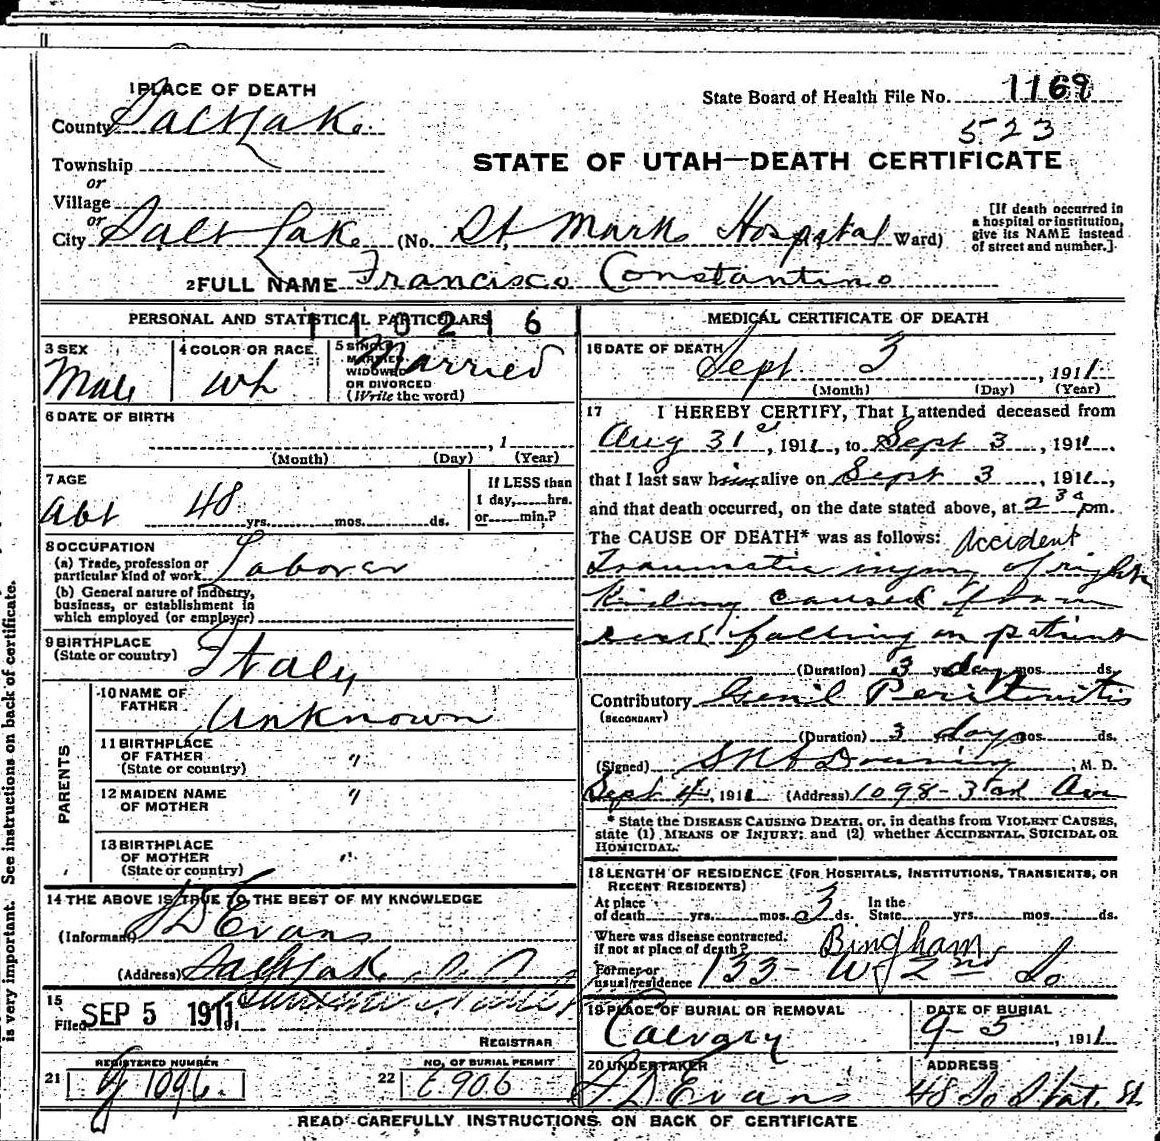 1 PLACE OF DEATH
County Salt Lake
State Board of Health File No. 1169
523
Township
or
Village
or
City Salt Lake (No. St. Marks Hospital Ward)
[If death occurred in
a hospital or institution,
give its NAME instead
of street and number.]
STATE OF UTAH—DEATH CERTIFICATE
2 FULL NAME Francisco Constantino
PERSONAL AND STATISTICAL PARTICULARS
110216
3 SEX
Male
4 COLOR OR RACE
Wh
5 SINGLE
MARRIED
WIDOWED
OR DIVORCED
(Write the word)
Married
6 DATE OF BIRTH
, 1
(Month) (Day) (Year)
7 AGE
Abt 48 yrs. mos. ds.
If LESS than
1 day, hrs.
or min.?
8 OCCUPATION
(a) Trade, profession or
particular kind of work Laborer
(b) General nature of industry,
business, or establishment in
which employed (or employer)
9 BIRTHPLACE
(State or country) Italy
PARENTS
10 NAME OF
FATHER Unknown
11 BIRTHPLACE
OF FATHER "
(State or country)
12 MAIDEN NAME
OF MOTHER "
13 BIRTHPLACE
OF MOTHER "
(State or country)
14 THE ABOVE IS TRUE TO THE BEST OF MY KNOWLEDGE
(Informant) Evans
(Address) Salt Lake
15
Filed SEP 5 1911
REGISTRAR
REGISTERED NUMBER
21 1096
NO. OF BURIAL PERMIT
22 E906
MEDICAL CERTIFICATE OF DEATH
16 DATE OF DEATH
Sept 3, 1911
(Month) (Day) (Year)
17 I HEREBY CERTIFY, That I attended deceased from
Aug 31st, 1911, to Sept 3, 1911.
that I last saw him alive on Sept 3, 1911,
and that death occurred, on the date stated above, at 2 30 pm.
The CAUSE OF DEATH* was as follows: Accident
Traumatic injury of right
Kidney caused from
rock falling on patient
(Duration) 3 yrs. days mos. ds.
Contributory Genil Peritonitis
(SECONDARY)
(Duration) 3 days mos. ds.
(Signed) Downing, M. D.
Sept 4, 1911 (Address) 1098-3rd Ave
* State the DISEASE CAUSING DEATH, or, in deaths from VIOLENT CAUSES,
state (1) MEANS OF INJURY; and (2) whether ACCIDENTAL, SUICIDAL OR
HOMICIDAL.
18 LENGTH OF RESIDENCE (FOR HOSPITALS, INSTITUTIONS, TRANSIENTS, OR
RECENT RESIDENTS)
At place
of death yrs. mos. 3 ds.
In the
State yrs. mos. ds.
Where was disease contracted,
if not at place of death? Bingham
Former or
usual residence 133- W 2nd So
19 PLACE OF BURIAL OR REMOVAL
Calvary
DATE OF BURIAL
9-5, 1911
20 UNDERTAKER
Evans
ADDRESS
48 So Stat. St.
READ CAREFULLY INSTRUCTIONS ON BACK OF CERTIFICATE
is very important. See instructions on back of certificate.